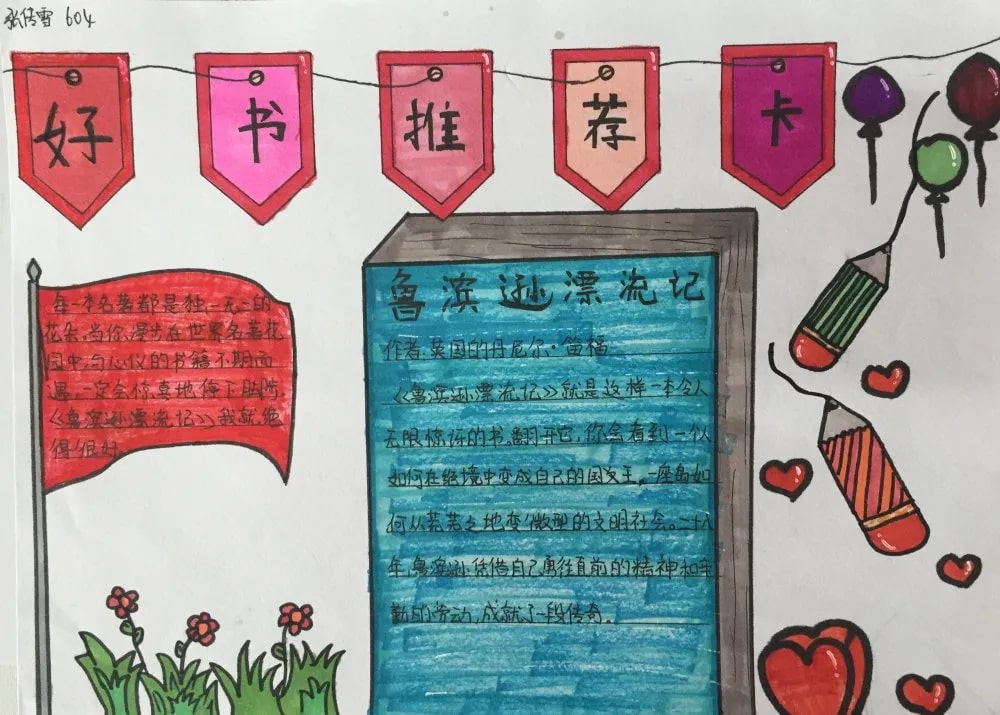 张传雪 604
好书推荐卡
每一本名著都是独一无二的
花朵,当你漫步在世界名著花
园中,与心仪的书籍不期而
遇,一定会惊喜地停下脚步,
《鲁滨逊漂流记》我就觉
得很好.
鲁滨逊漂流记
作者:英国的丹尼尔·笛福
《鲁滨逊漂流记》就是这样一本令人
无限惊讶的书。翻开它,你会看到一个人
如何在绝境中变成自己的国家王,一座岛如
何从荒芜之地变微型的文明社会。二十八
年,鲁滨逊凭借自己勇往直前的精神和辛
勤的劳动,成就了一段传奇。